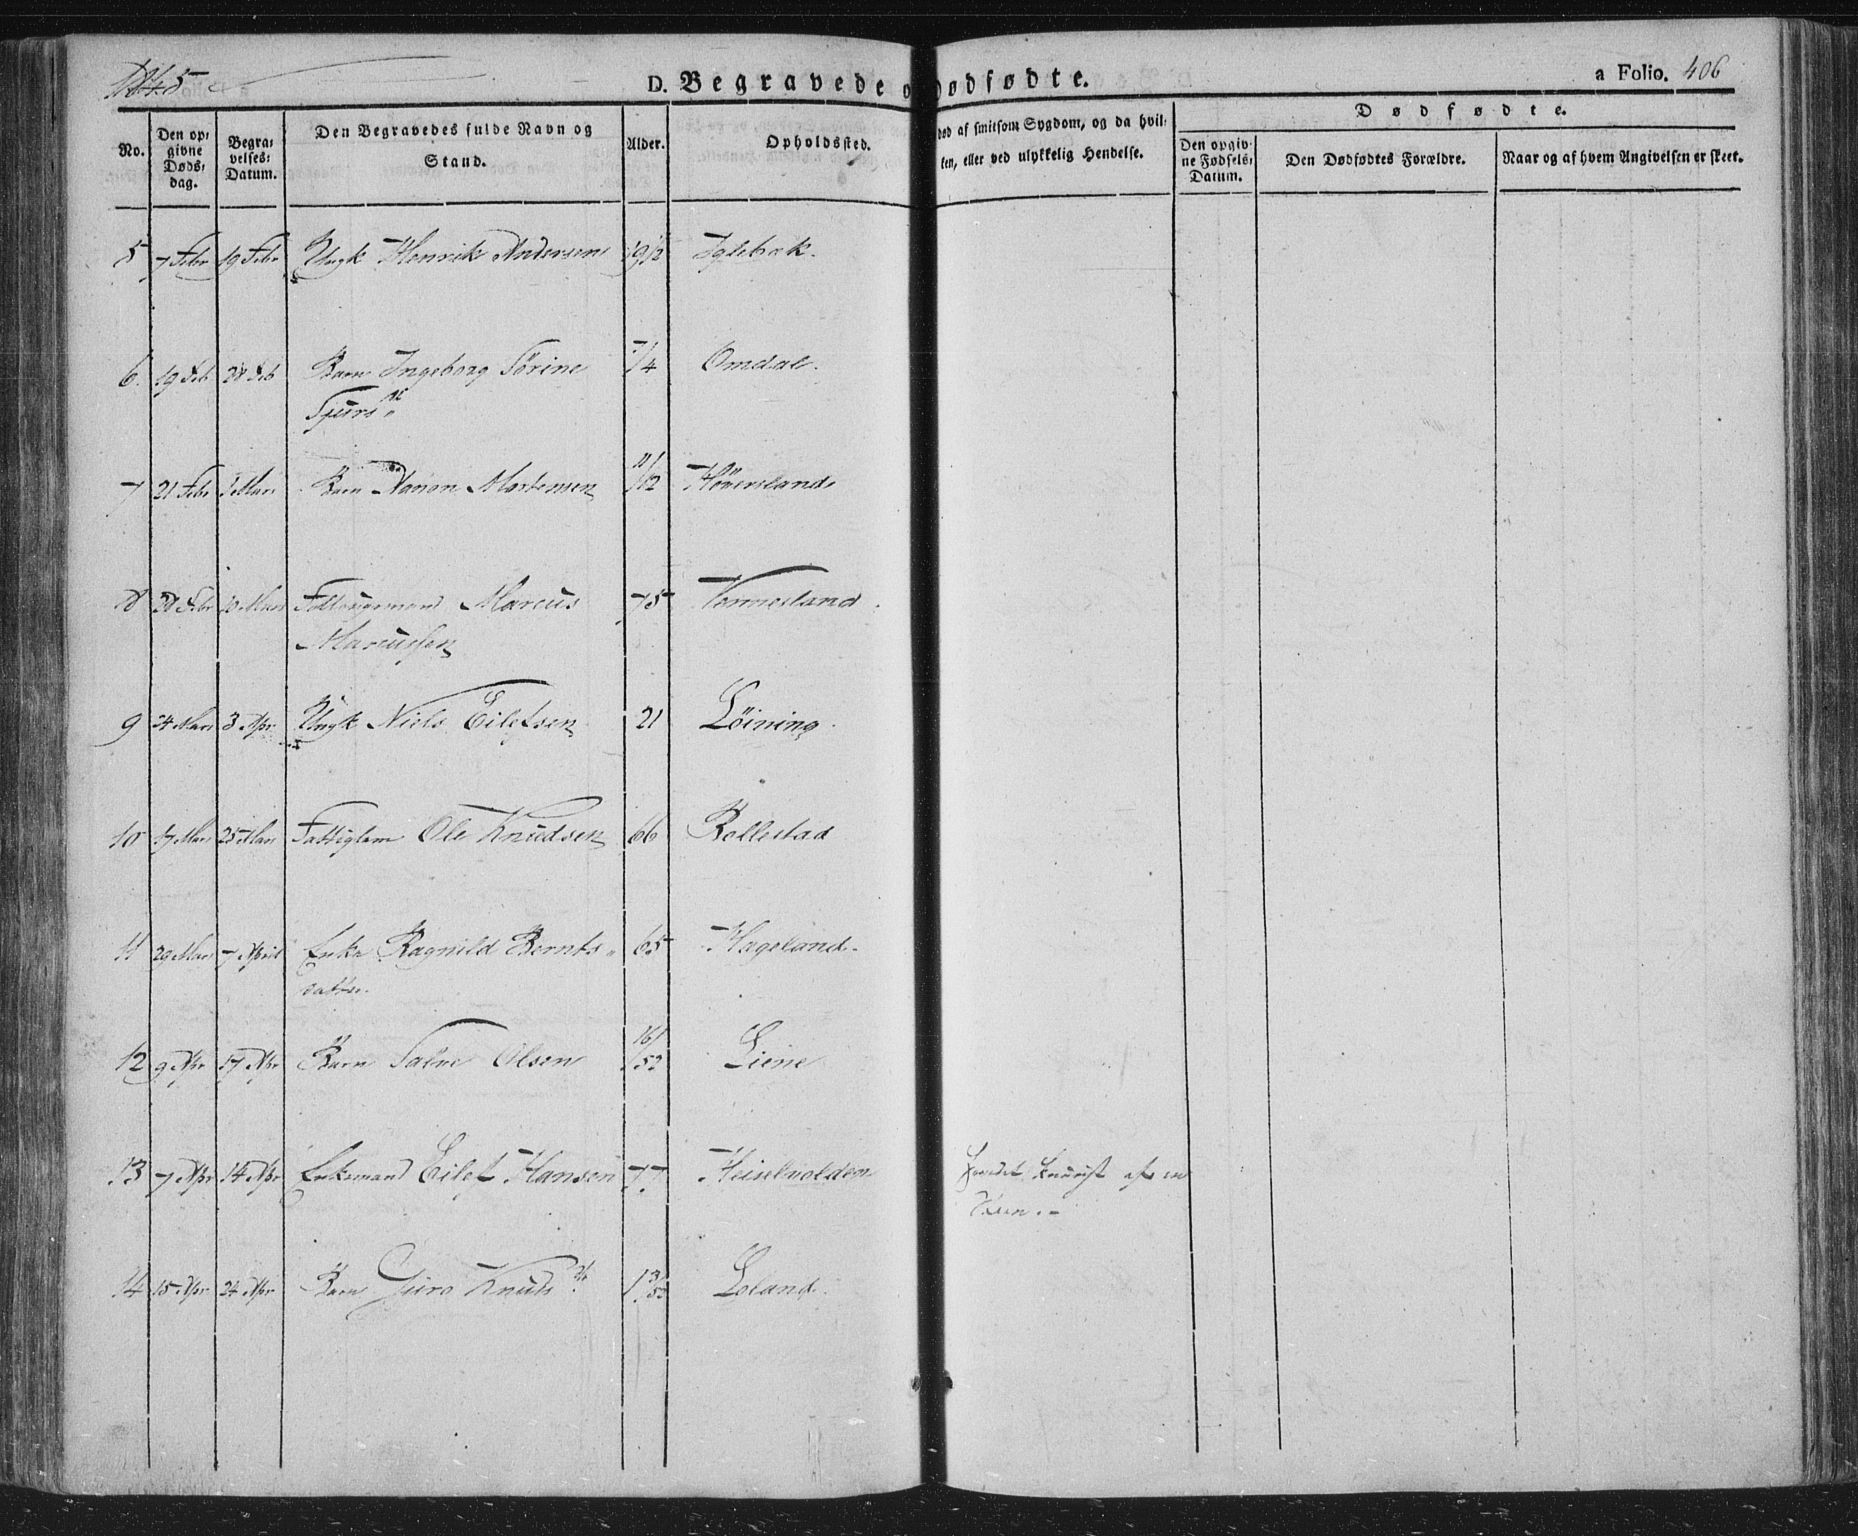 1845
D. Begravede o
dødfødte.
a Folio. 406
No.
Den op-
givne
Døds-
dag.
Begra-
velses-
Datum.
Den Begravedes fulde Navn og
Stand.
Alder.
Opholdssted.
død af smitsom Sygdom, og da hvil-
ken, eller ved ulykkelig Hendelse.
Dødfødte.
Den opgiv-
ne Fødsels-
Datum.
Den Dødfødtes Forældre.
Naar og af hvem Angivelsen er skeet.
5 7 Febr 19 Febr Ungk Henrik Andersen 19 1/2 Iglebæk.
6. 19 Feb 28 Feb Barn Ingeborg Sørine 7/4 Omdal.
Sjurs
7 21 Febr 2 Mars Barn Nanon Mortensen 11/12 Høversland
8 28 Febr 10 Mars Marcus 75 Vennesland.
Marcussen
9 24 Mars 3 Apr Ungk Niels Eilefsen 21 Løining.
10 17 Mars 25 Mars Fattiglem Ole Knudsen 66 Rollestad
11 29 Mars 7 April Enke Ragnild Bernts- 65 Hageland.
datter.
12 9 Apr 17 Apr Barn Salve Olsen 16/52 Liene
13 7 Apr 14 Apr Enkemand Eilef Hansen 77 Heiselvolden Fundet af en
14 15 Apr 24 Apr Barn Guro Knuts 13/52 Loland.